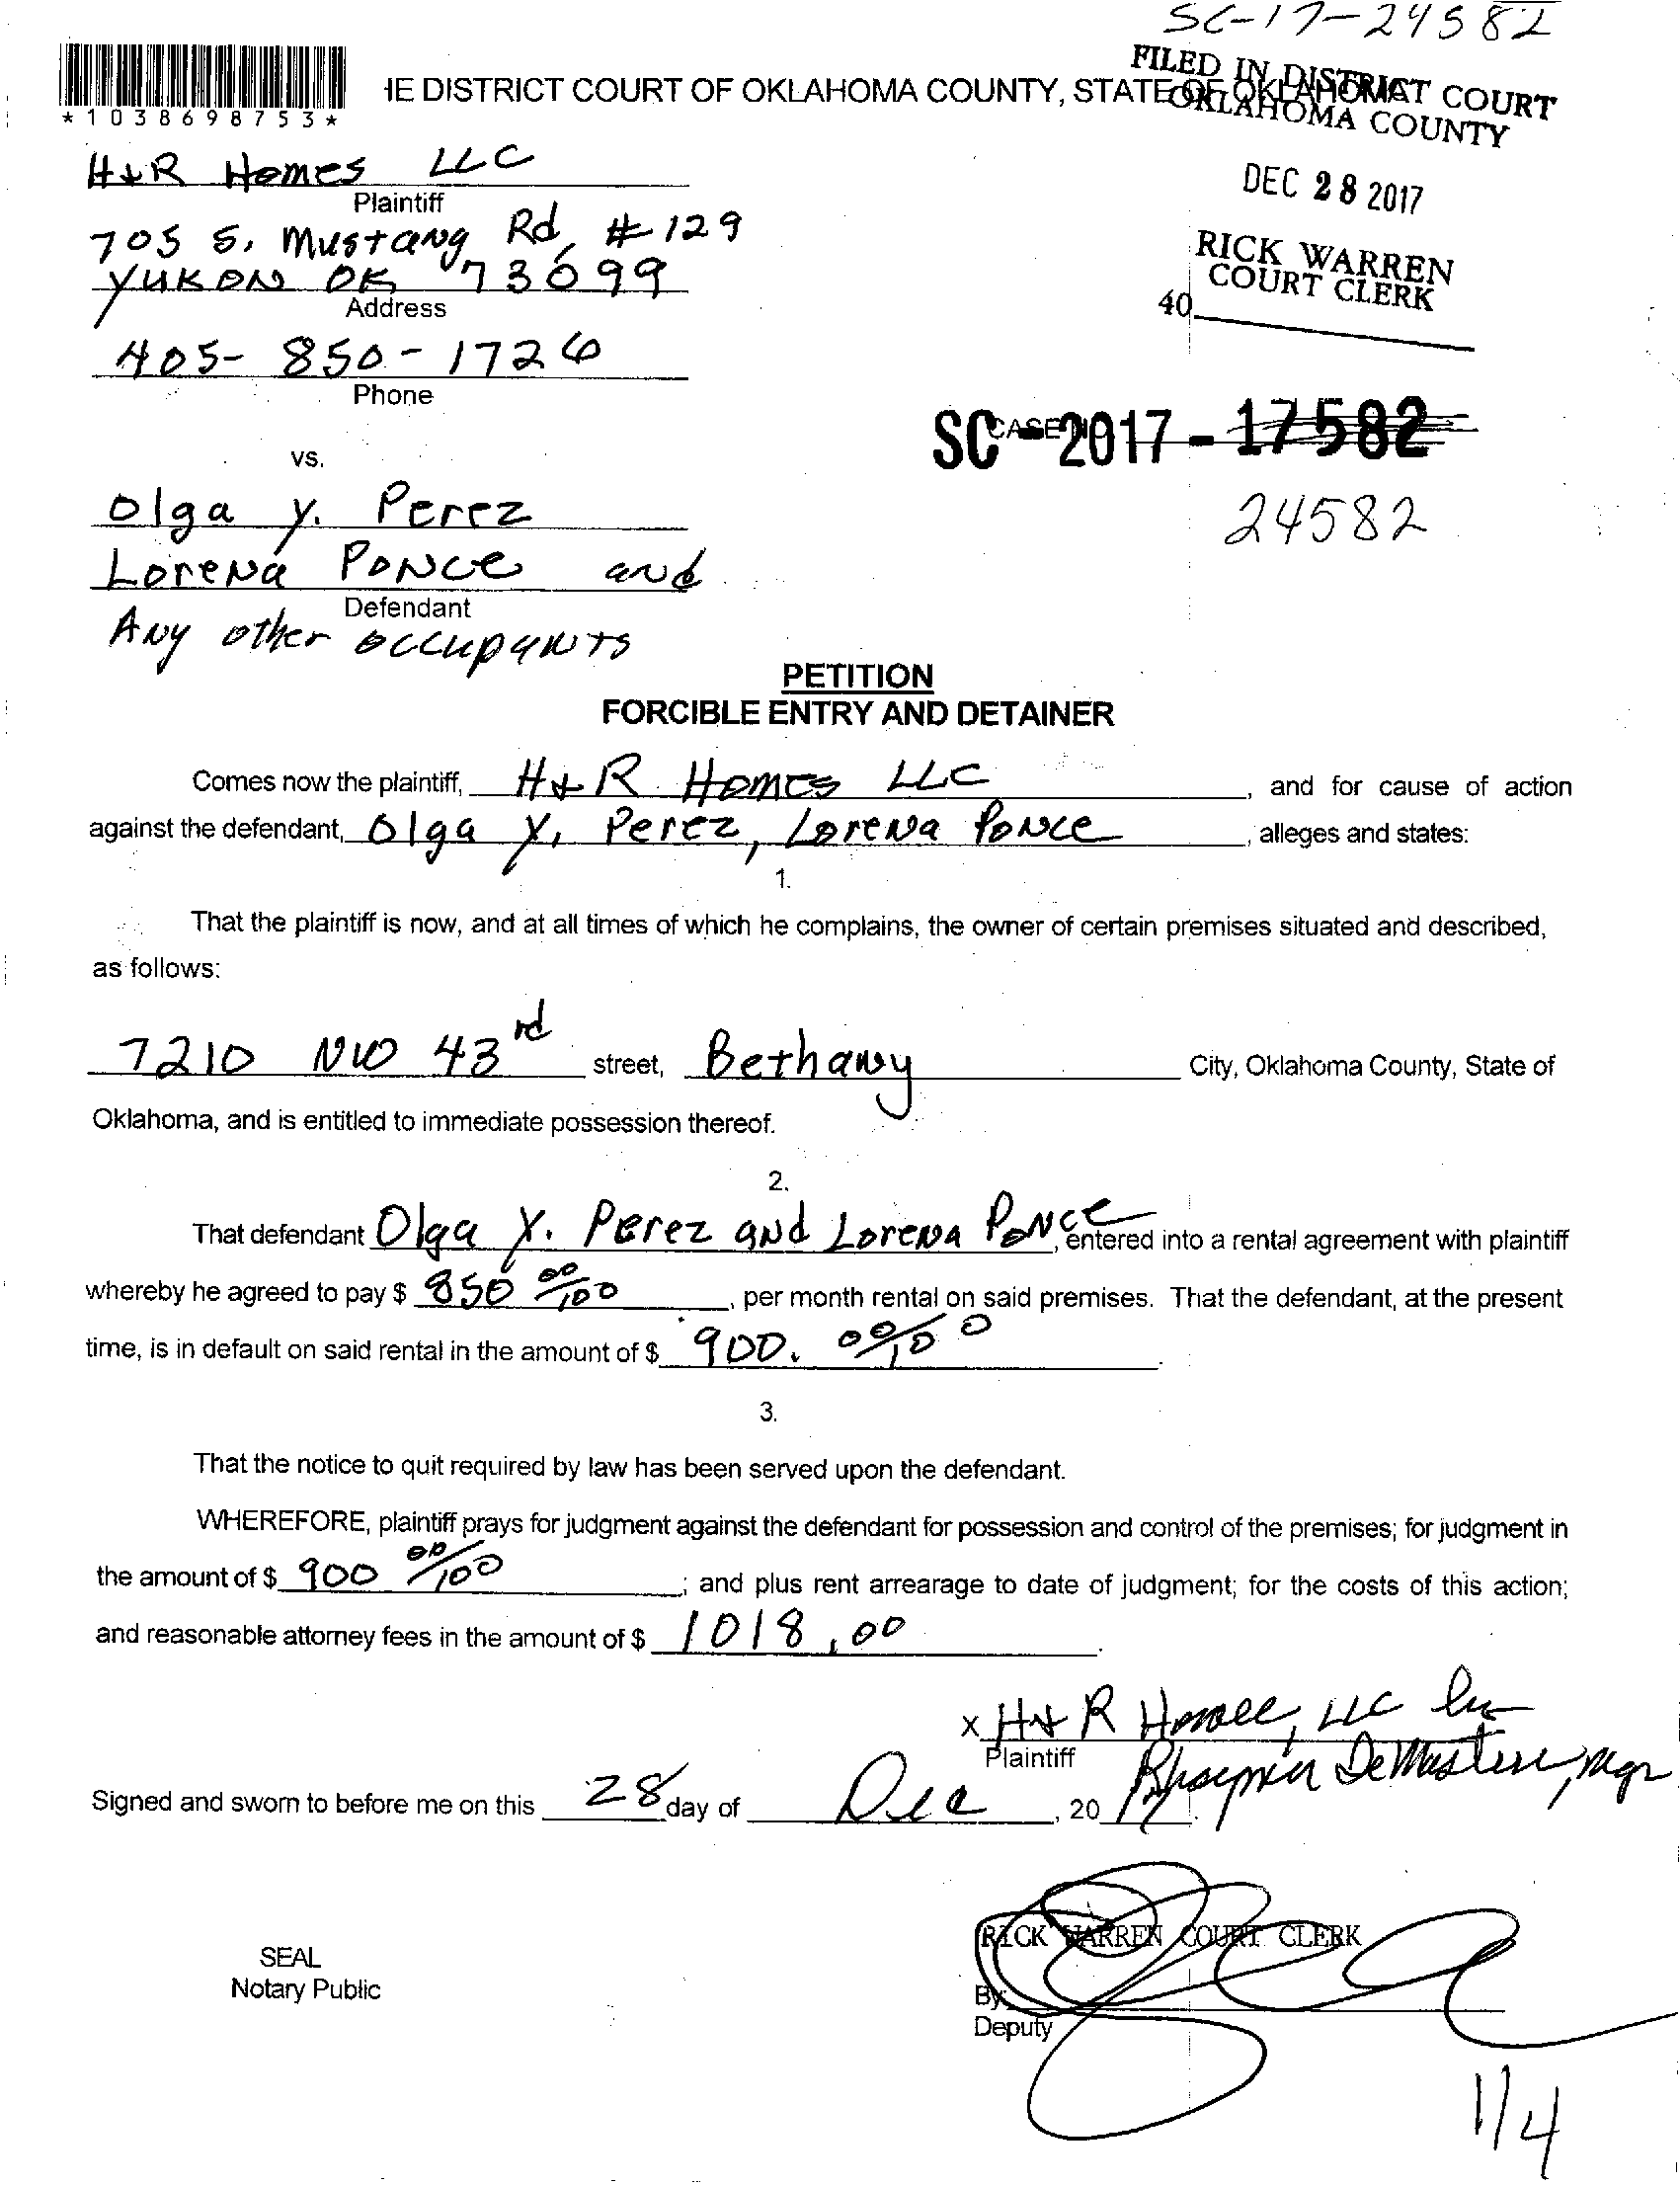 SC-17-24582
FILED IN DISTRICT COURT
OKLAHOMA COUNTY
*1038698753*
IE DISTRICT COURT OF OKLAHOMA COUNTY, STATE OF OKLAHOMA
DEC 28 2017
RICK WARREN
COURT CLERK
40
H & R Homes LLC
Plaintiff
705 S. Mustang Rd # 129
Yukon OK 73099
Address
405-850-1726
Phone
SC-2017-17582
CASE
24582
vs.
Olga Y. Perez
Lorena Ponce and
Defendant
Any other occupants
PETITION
FORCIBLE ENTRY AND DETAINER
Comes now the plaintiff, H & R Homes LLC, and for cause of action
against the defendant, Olga Y. Perez, Lorena Ponce, alleges and states:
1.
That the plaintiff is now, and at all times of which he complains, the owner of certain premises situated and described,
as follows:
7210 NW 43rd street, Bethany City, Oklahoma County, State of
Oklahoma, and is entitled to immediate possession thereof.
2.
That defendant Olga Y. Perez and Lorena Ponce, entered into a rental agreement with plaintiff
whereby he agreed to pay $ 850 00/100, per month rental on said premises. That the defendant, at the present
time, is in default on said rental in the amount of $ 900. 00/100.
3.
That the notice to quit required by law has been served upon the defendant.
WHEREFORE, plaintiff prays for judgment against the defendant for possession and control of the premises; for judgment in
the amount of $ 900 00/100; and plus rent arrearage to date of judgment; for the costs of this action;
and reasonable attorney fees in the amount of $ 1018.00.
X H & R Homes, LLC by
Plaintiff
DeMasters, mgr
Signed and sworn to before me on this 28 day of Dec, 20
RICK WARREN COURT CLERK
SEAL
Notary Public
By:
Deputy
1/4